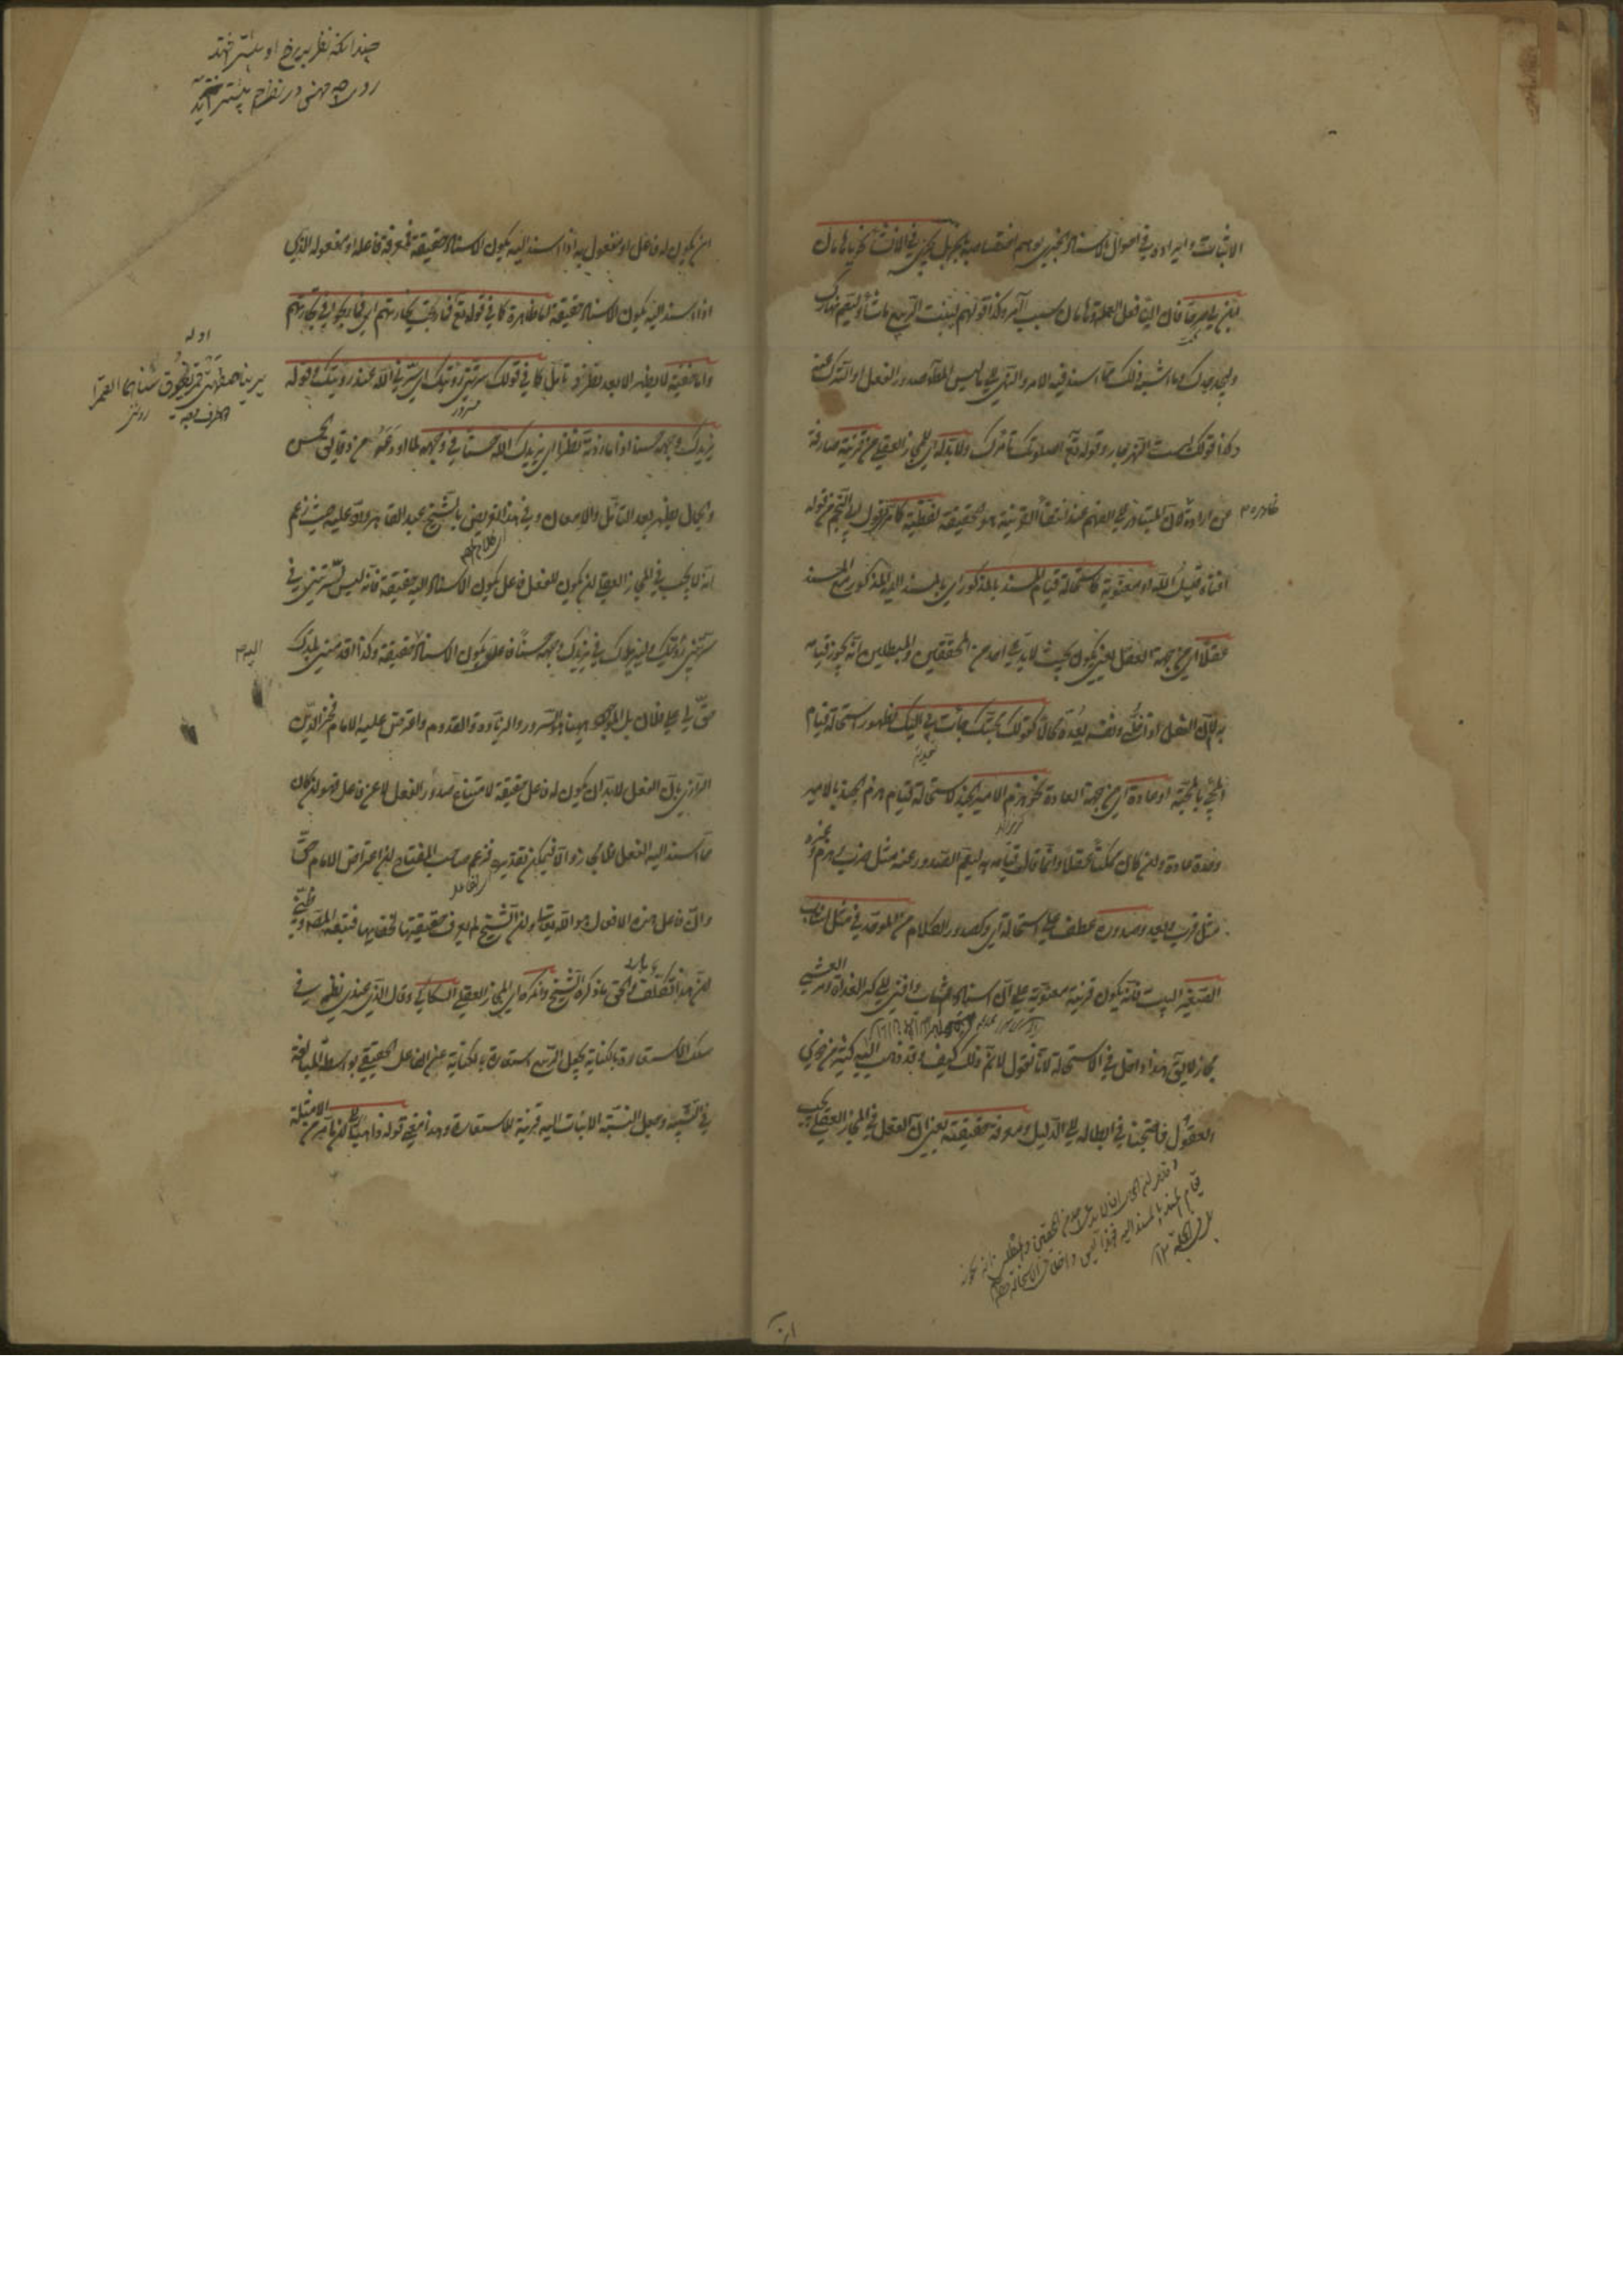 الاثبات وايراده في احوال الاسناد الخبري يوهم اختصاصه بالخبر بل يجري في الانشاء نحو يا هامان
ابن لي صرحا فان البناء فعل العملة وهامان سبب آمر وكذا قولهم لينبت الربيع ما شاء وليصم نهارك
وليجد جدك وما اشبه ذلك مما اسند فيه الامر والنهي الى ما ليس المطلوب صدور الفعل او الترك عنه
وكذا قولك ليت النهر جار وقوله تع اصلوتك تأمرك ولا بد له اي للمجاز العقلي من قرينة صارفة
عن ارادة ظاهره لان المتبادر الى الفهم عند انتفاء القرينة هو الحقيقة لفظية كما مر في قول ابي النجم من قوله
افناه قيل الله او معنوية كاستحالة قيام المسند بالمذكور اي بالمسند اليه المذكور مع المسند
عقلا اي من جهة العقل يعني يكون بحيث لا يدعي احد من المحققين والمبطلين انه يجوز قيامه
به لان العقل اذا خلي ونفسه يعده محالا كقولك محبتك جاءت بي اليك لظهور استحالة قيام
المجيء بالمحبة او عادة اي من جهة العادة نحو هزم الامير الجند لاستحالة قيام هزم الجند بالامير
وحده عادة وان كان ممكنا عقلا وانما قال قيامه به ليعم الصدور عنه مثل ضرب وهزم وغيره
مثل قرب وبعد وصدوره عطف على استحالة اي وكصدور الكلام من الموحد في مثل اشاب
الصغير البيت فانه يكون قرينة معنوية على ان اسناد اشاب وافنى الى كر الغداة ومر العشي
مجاز لا يق هذا داخل في الاستحالة لانا نقول لا نم ذلك كيف وقد ذهب اليه كثير من ذوي
العقول فاحتجنا في ابطاله الى الدليل ومعرفة حقيقته يعني ان الفعل في المجاز العقلي يجب
قيام المسند بالمسند اليه
ان
چندانكه نظر بر رخ او بيشتر فتد
ان يكون له فاعل او مفعول به اذا اسند اليه يكون الاسناد حقيقة فمعرفة فاعله او مفعوله الذي
اذا اسند اليه يكون الاسناد حقيقة اما ظاهرة كما في قوله تع فما ربحت تجارتهم اي فما ربحوا في تجارتهم
واما خفية لا يظهر الا بعد نظر وتأمل كما في قولك سرتني رؤيتك اي سرني الله عند رؤيتك وقوله
يزيدك وجهه حسنا اذا ما زدته نظرا اي يزيدك الله حسنا في وجهه لما اودعه من دقايق الحسن
والجمال يظهر بعد التأمل والامعان وفي هذا تعريض بالشيخ عبد القاهر ورد عليه حيث زعم
انه لا يجب في المجاز العقلي ان يكون للفعل فاعل يكون الاسناد اليه حقيقة فانه ليس لسرتني في
سرتني رؤيتك وليزيدك في يزيدك وجهه حسنا فاعل يكون الاسناد اليه حقيقة وكذا اقدمني بلدك
حق لي على فلان بل الموجود ههنا هو السرور والزيادة والقدوم واعترض عليه الامام فخر الدين
الرازي بان الفعل لا بد ان يكون له فاعل حقيقة لامتناع صدور الفعل لا عن فاعل فهو ان كان
ما اسند اليه الفعل فلا مجاز والا فيمكن تقديره فزعم صاحب المفتاح ان اعتراض الامام حق
وان فاعل هذه الافعال هو الله تعالى وان الشيخ لم يعرف حقيقتها لخفائها فتبعه المصنف وظني
ان هذا تكلف والحق ما ذكره الشيخ وانكره اي المجاز العقلي السكاكي وقال الذي عندي نظمه في
سلك الاستعارة بالكناية بجعل الربيع استعارة بالكناية عن الفاعل الحقيقي بواسطة المبالغة
في التشبيه وجعل النسبة الاثبات اليه قرينة للاستعارة وهذا معنى قوله ذاهبا الى ان ما مر من الامثلة